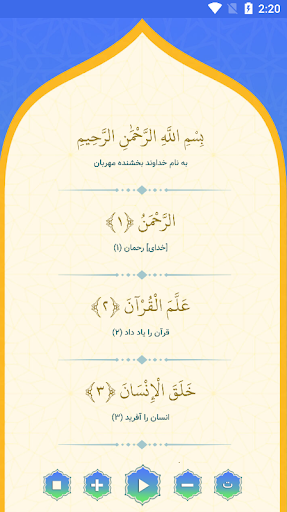 2:20
بِسْمِ اللَّهِ الرَّحْمَٰنِ الرَّحِيمِ
به نام خداوند بخشنده مهربان
الرَّحْمَنُ ﴿۱﴾
[خدای] رحمان (۱)
عَلَّمَ الْقُرْآنَ ﴿۲﴾
قرآن را یاد داد (۲)
خَلَقَ الْإِنْسَانَ ﴿۳﴾
انسان را آفرید (۳)
ت